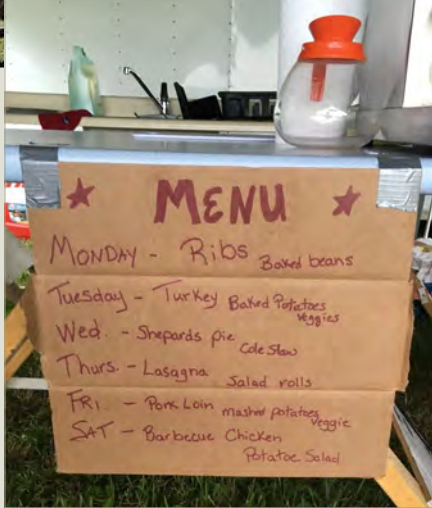 ★ MENU ★
MONDAY - Ribs Baked beans
Tuesday - Turkey Baked Potatoes
veggies
Wed. - Shepards pie
Cole Slaw
Thurs. - Lasagna
Salad rolls
FRI - Pork Loin mashed potatoes
veggie
SAT - Barbecue Chicken
Potatoe Salad